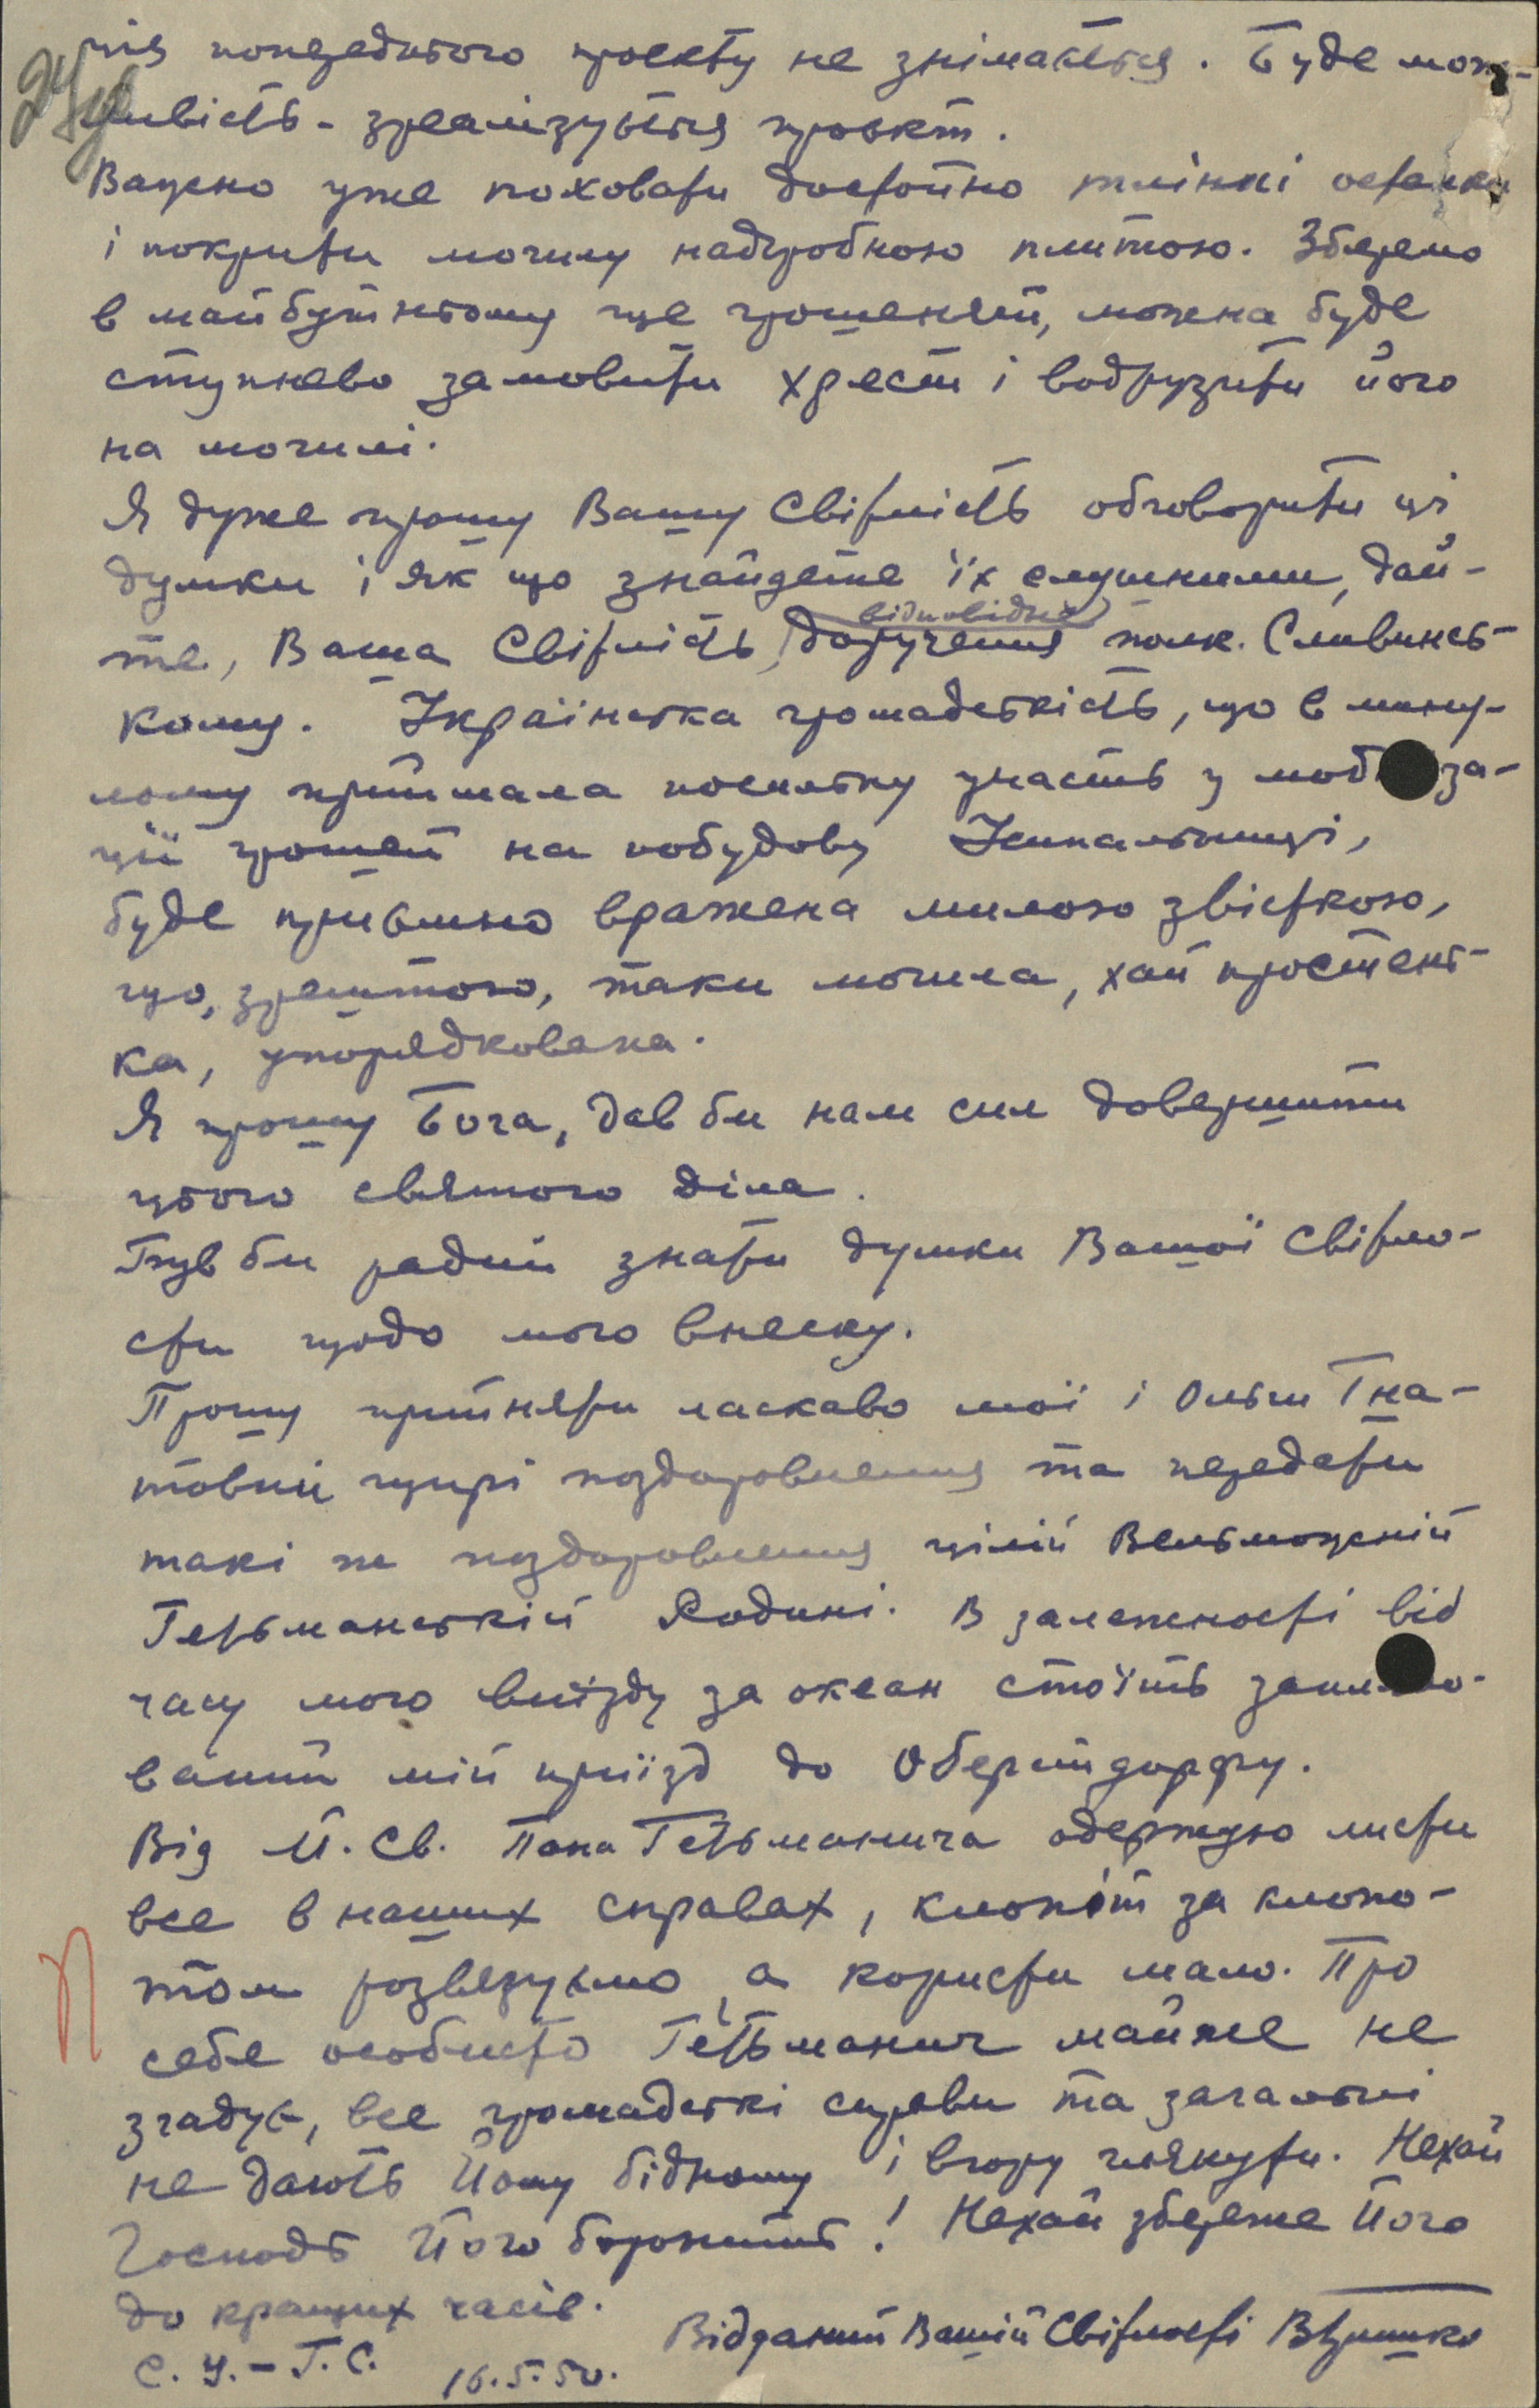 ція попереднього проекту не знімається. Буде мож-
ливість - зреалізується проект.
Важно уже поховати достойно тлінні останки
і покрити могилу надгробною плитою. Зберемо
в майбутньому ще грошенят, можна буде
ступнево замовити хрест і водрузити його
на могилі.
Я дуже прошу Вашу Світлість обговорити ці
думки і як що знайдете їх слушними, дай-
те, Ваша Світлість, відповідне доручення полк. Сливинсь-
кому. Українська громадськість, що в мину-
лому приймала посильну участь у мобіліза-
ції грошей на побудову Усипальниці,
буде приємно вражена милою звісткою,
що, зрештою, таки могила, хай простень-
ка, упорядкована.
Я прошу Бога, дав би нам сил довершити
цього святого діла.
Був би радий знати думки Вашої Світло-
сти щодо мого внеску.
Прошу прийняти ласкаво мої і Ольги Гна-
товни щирі поздоровлення та передати
такі ж поздоровлення цілій Вельможній
Гетьманській Родині. В залежності від
часу мого виїзду за океан стоїть запляно-
ваний мій приїзд до Оберстдорфу.
Від Й. Св. Пана Гетьманича одержую листи
все в наших справах, клопіт за клопо-
том розвязуємо, а користи мало. Про
себе особисто Гетьманич майже не
згадує, все громадські справи та загальні
не дають Йому бідному і вгору глянути. Нехай
Господь Його боронить! Нехай збереже Його
до кращих часів.
С. У. - Г. С. 16.5.50. Відданий Вашій Світлості